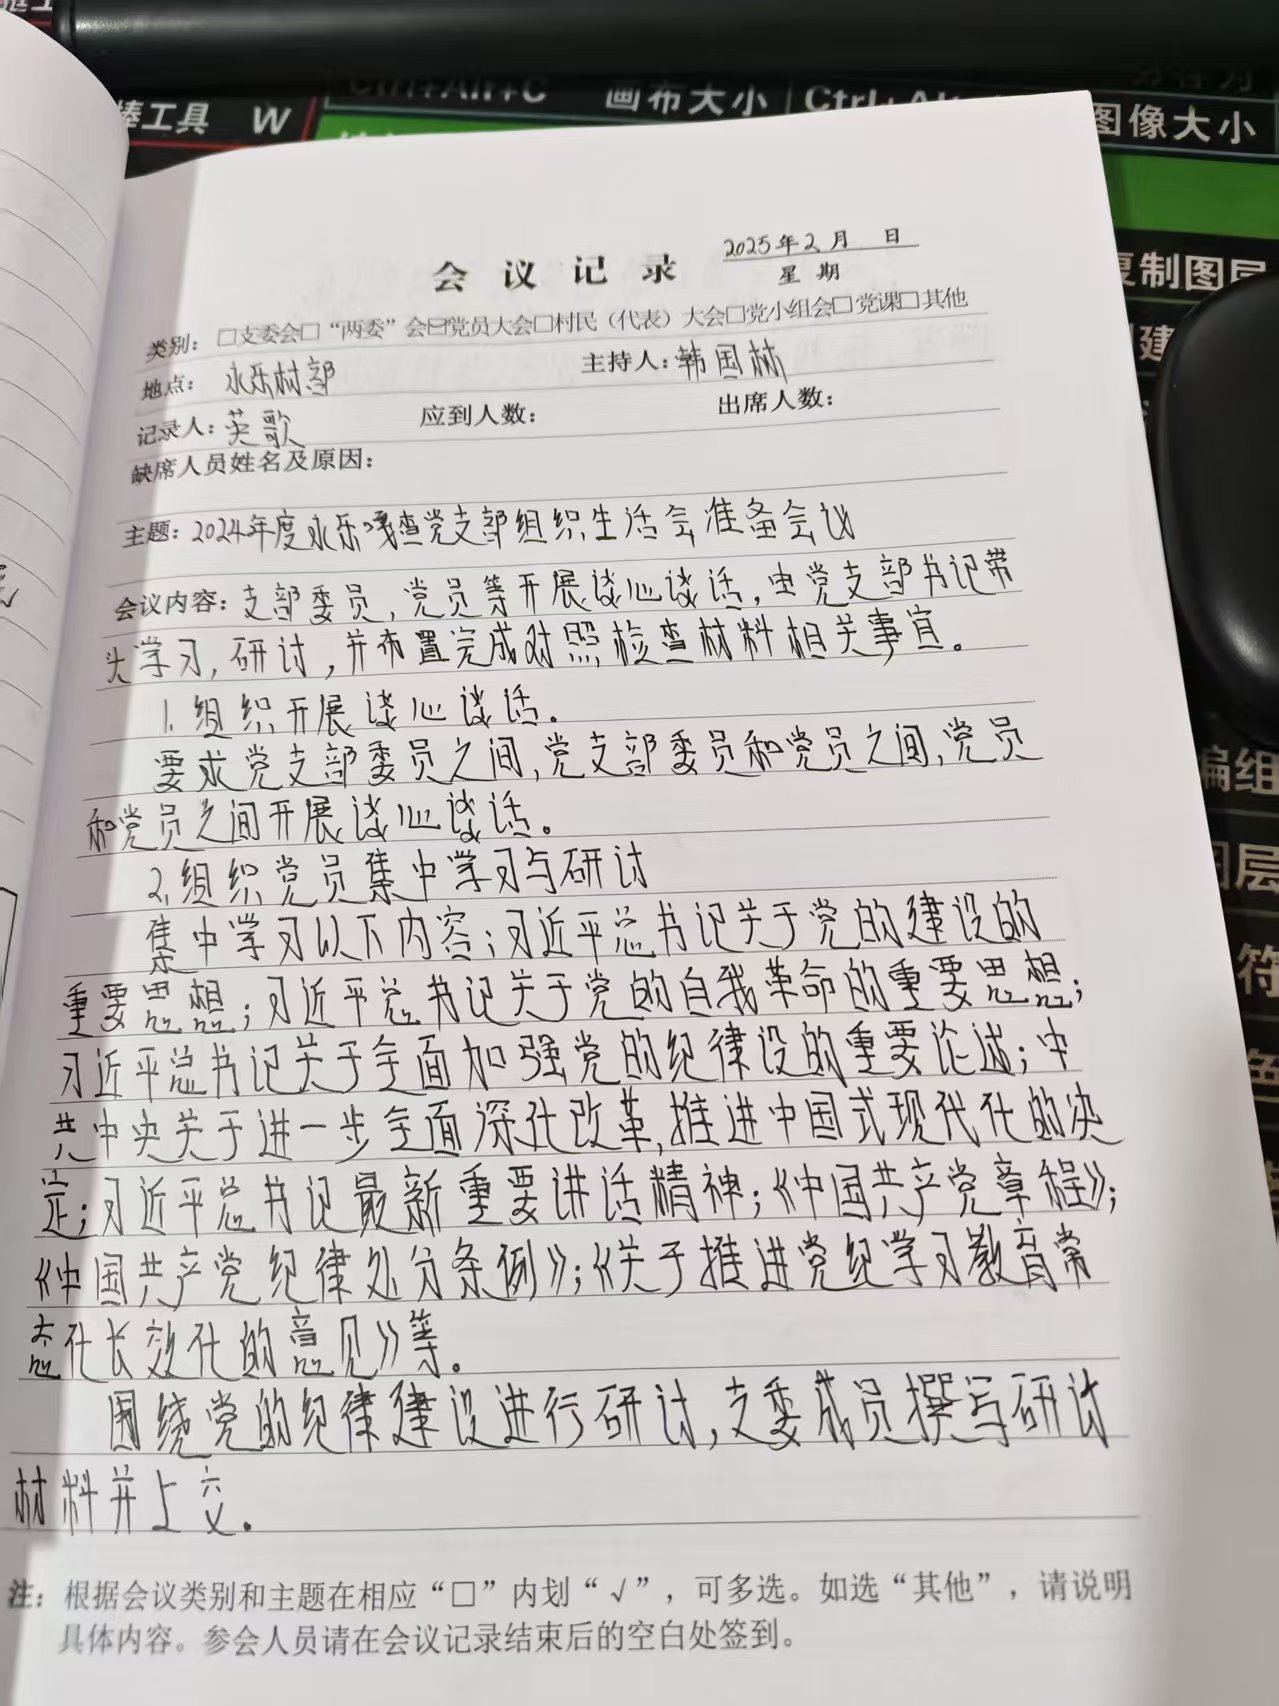 棒工具 W
Ctrl+Alt+C 画布大小
图像大小
复制图层
编组
图层
2025年2月 日
会议记录
星期
类别：□支委会□“两委”会☑党员大会□村民（代表）大会□党小组会□党课□其他
地点：永乐村部 主持人：韩国林
记录人：英歌 应到人数： 出席人数：
缺席人员姓名及原因：
主题：2024年度永乐嘎查党支部组织生活会准备会议
会议内容：支部委员，党员等开展谈心谈话，由党支部书记带
头学习，研讨，并布置完成对照检查材料相关事宜。
1.组织开展谈心谈话。
要求党支部委员之间，党支部委员和党员之间，党员
和党员之间开展谈心谈话。
2.组织党员集中学习与研讨
集中学习以下内容；习近平总书记关于党的建设的
重要思想；习近平总书记关于党的自我革命的重要思想；
习近平总书记关于全面加强党的纪律设的重要论述；中
共中央关于进一步全面深化改革，推进中国式现代化的决
定；习近平总书记最新重要讲话精神；《中国共产党章程》；
《中国共产党纪律处分条例》；《关于推进党纪学习教育常
态化长效化的意见》等。
围绕党的纪律建设进行研讨，支委成员撰写研讨
材料并上交。
注：根据会议类别和主题在相应“□”内划“√”，可多选。如选“其他”，请说明
具体内容。参会人员请在会议记录结束后的空白处签到。